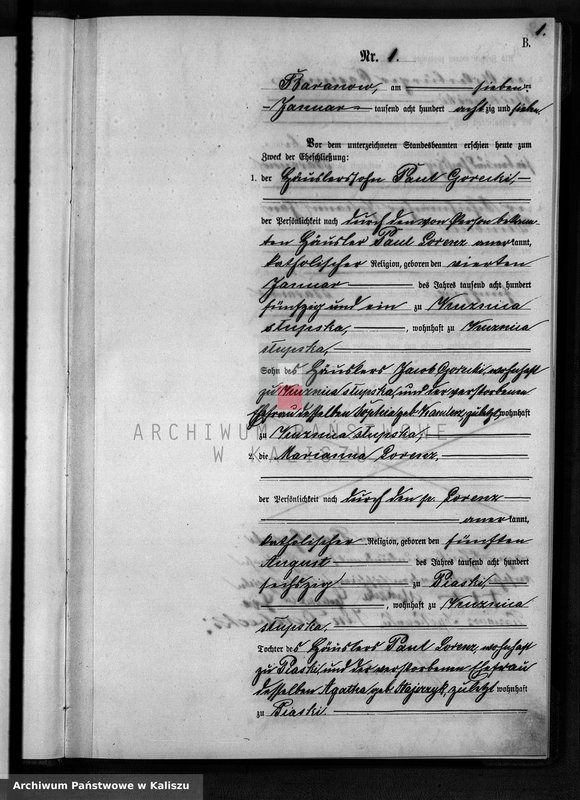 1.
B.
Nr. 1.
Baranow, am sieben ten
Januar tausend acht hundert achtzig und sieben
Vor dem unterzeichneten Standesbeamten erschien heute zum
Zweck der Eheschließung:
1. der Häuslersohn Paul Gorecki,
der Persönlichkeit nach durch den von Person bekann-
ten Häusler Paul Lorenz anerkannt,
katholischer Religion, geboren den vierten
Januar des Jahres tausend acht hundert
fünfzig und ein zu Kuznica
słupska, wohnhaft zu Kuznica
słupska,
Sohn des Häuslers Jacob Gorecki, wohnhaft
zu Kuznica słupska, und der verstorbenen
Ehefrau desselben Sophia geb. zuletzt wohnhaft
zu Kuznica słupska,
ARCHIWUM PAŃSTWOWE
W KALISZU
2. die Marianna Lorenz,
der Persönlichkeit nach durch den p. Lorenz
anerkannt,
katholischer Religion, geboren den fünften
August des Jahres tausend acht hundert
sechszig zu Piaski
, wohnhaft zu Kuznica
słupska,
Tochter des Häuslers Paul Lorenz, wohnhaft
zu Piaski, und der verstorbenen Ehefrau
desselben Agatha geb. zuletzt wohnhaft
zu Piaski.
Archiwum Państwowe w Kaliszu